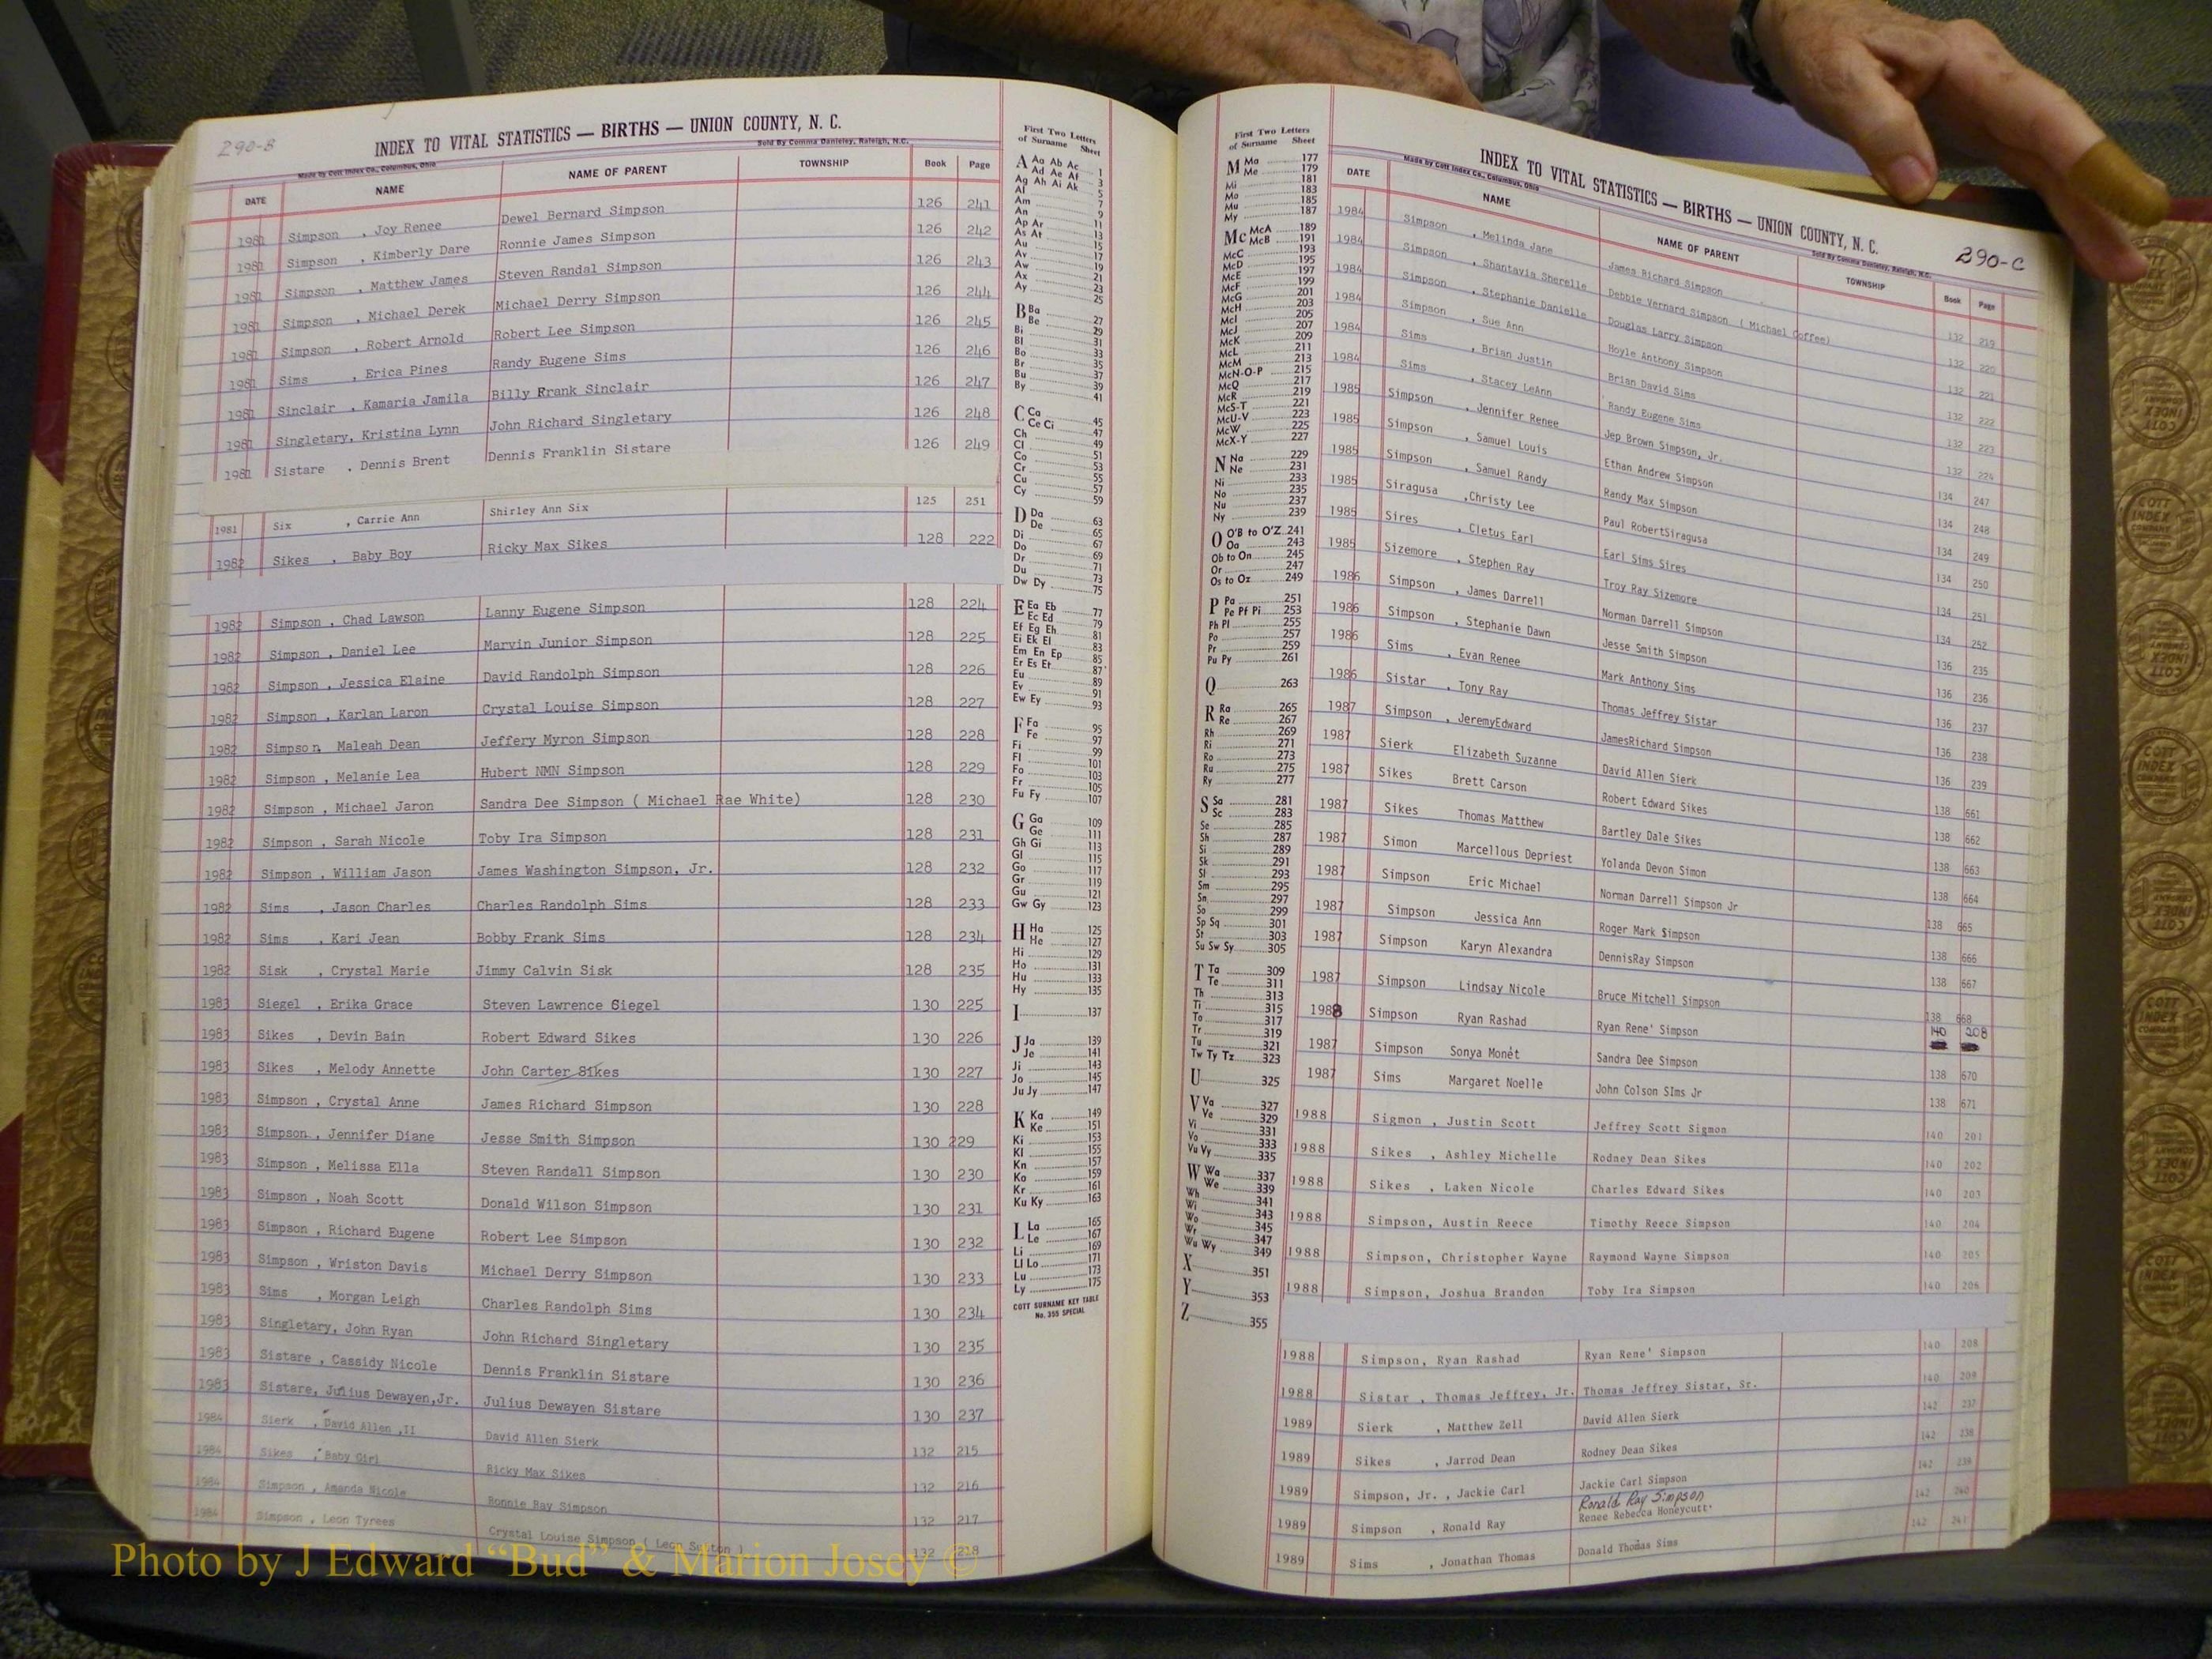 290-B
INDEX TO VITAL STATISTICS — BIRTHS — UNION COUNTY, N. C.
Made by Cott Index Co., Columbus, Ohio Sold By Comma Danieley, Raleigh, N.C.
DATE NAME NAME OF PARENT TOWNSHIP Book Page
1981 Simpson , Joy Renee Dewel Bernard Simpson 126 241
1981 Simpson , Kimberly Dare Ronnie James Simpson 126 242
1981 Simpson , Matthew James Steven Randal Simpson 126 243
1981 Simpson , Michael Derek Michael Derry Simpson 126 244
1981 Simpson , Robert Arnold Robert Lee Simpson 126 245
1981 Sims , Erica Pines Randy Eugene Sims 126 246
1981 Sinclair , Kamaria Jamila Billy Frank Sinclair 126 247
1981 Singletary, Kristina Lynn John Richard Singletary 126 248
1981 Sistare , Dennis Brent Dennis Franklin Sistare 126 249
1981 Six , Carrie Ann Shirley Ann Six 125 251
1982 Sikes , Baby Boy Ricky Max Sikes 128 222
1982 Simpson , Chad Lawson Lanny Eugene Simpson 128 224
1982 Simpson , Daniel Lee Marvin Junior Simpson 128 225
1982 Simpson , Jessica Elaine David Randolph Simpson 128 226
1982 Simpson , Karlan Laron Crystal Louise Simpson 128 227
1982 Simpson, Maleah Dean Jeffery Myron Simpson 128 228
1982 Simpson , Melanie Lea Hubert NMN Simpson 128 229
1982 Simpson , Michael Jaron Sandra Dee Simpson ( Michael Rae White) 128 230
1982 Simpson , Sarah Nicole Toby Ira Simpson 128 231
1982 Simpson , William Jason James Washington Simpson, Jr. 128 232
1982 Sims , Jason Charles Charles Randolph Sims 128 233
1982 Sims , Kari Jean Bobby Frank Sims 128 234
1982 Sisk , Crystal Marie Jimmy Calvin Sisk 128 235
1983 Siegel , Erika Grace Steven Lawrence Siegel 130 225
1983 Sikes , Devin Bain Robert Edward Sikes 130 226
1983 Sikes , Melody Annette John Carter Sikes 130 227
1983 Simpson , Crystal Anne James Richard Simpson 130 228
1983 Simpson , Jennifer Diane Jesse Smith Simpson 130 229
1983 Simpson , Melissa Ella Steven Randall Simpson 130 230
1983 Simpson , Noah Scott Donald Wilson Simpson 130 231
1983 Simpson , Richard Eugene Robert Lee Simpson 130 232
1983 Simpson , Wriston Davis Michael Derry Simpson 130 233
1983 Sims , Morgan Leigh Charles Randolph Sims 130 234
1983 Singletary, John Ryan John Richard Singletary 130 235
1983 Sistare , Cassidy Nicole Dennis Franklin Sistare 130 236
1983 Sistare, Julius Dewayen,Jr. Julius Dewayen Sistare 130 237
1984 Sierk , David Allen ,II David Allen Sierk 132 215
1984 Sikes , Baby Girl Ricky Max Sikes 132 216
1984 Simpson , Amanda Nicole Ronnie Ray Simpson 132 217
1984 Simpson , Leon Tyrees Crystal Louise Simpson ( Leon Sutton ) 132 218
First Two Letters
of Surname Sheet
A Aa Ab Ac 1
Ad Ae Af 3
Ag Ah Ai Ak 5
Al 7
Am 9
An 11
Ap Ar 13
As At 15
Au 17
Av 19
Aw 21
Ax 23
Ay 25
B Ba 27
Be 29
Bi 31
Bl 33
Bo 35
Br 37
Bu 39
By 41
C Ca 45
Ce Ci 47
Ch 49
Cl 51
Co 53
Cr 55
Cu 57
Cy 59
D Da 63
De 65
Di 67
Do 69
Dr 71
Du 73
Dw Dy 75
E Ea Eb 77
Ec Ed 79
Ef Eg Eh 81
Ei Ek El 83
Em En Ep 85
Er Es Et 87
Eu 89
Ev 91
Ew Ey 93
F Fa 95
Fe 97
Fi 99
Fl 101
Fo 103
Fr 105
Fu Fy 107
G Ga 109
Ge 111
Gh Gi 113
Gl 115
Go 117
Gr 119
Gu 121
Gw Gy 123
H Ha 125
He 127
Hi 129
Ho 131
Hu 133
Hy 135
I 137
J Ja 139
Je 141
Ji 143
Jo 145
Ju Jy 147
K Ka 149
Ke 151
Ki 153
Kl 155
Kn 157
Ko 159
Kr 161
Ku Ky 163
L La 165
Le 167
Li 169
Ll Lo 171
Lu 173
Ly 175
COTT SURNAME KEY TABLE
No. 355 SPECIAL
First Two Letters
of Surname Sheet
M Ma 177
Me 179
Mi 181
Mo 183
Mu 185
My 187
Mc McA 189
McB 191
McC 193
McD 195
McE 197
McF 199
McG 201
McH 203
McI 205
McJ 207
McK 209
McL 211
McM 213
McN-O-P 215
McQ 217
McR 219
McS-T 221
McU-V 223
McW 225
McX-Y 227
N Na 229
Ne 231
Ni 233
No 235
Nu 237
Ny 239
O O'B to O'Z 241
Oa 243
Ob to On 245
Or 247
Os to Oz 249
P Pa 251
Pe Pf Pi 253
Ph Pl 255
Po 257
Pr 259
Pu Py 261
Q 263
R Ra 265
Re 267
Rh 269
Ri 271
Ro 273
Ru 275
Ry 277
S Sa 281
Sc 283
Se 285
Sh 287
Si 289
Sk 291
Sl 293
Sm 295
Sn 297
So 299
Sp Sq 301
St 303
Su Sw Sy 305
T Ta 309
Te 311
Th 313
Ti 315
To 317
Tr 319
Tu 321
Tw Ty Tz 323
U 325
V Va 327
Ve 329
Vi 331
Vo 333
Vu Vy 335
W Wa 337
We 339
Wh 341
Wi 343
Wo 345
Wr 347
Wu Wy 349
X 351
Y 353
Z 355
INDEX TO VITAL STATISTICS — BIRTHS — UNION COUNTY, N. C.
290-C
Made by Cott Index Co., Columbus, Ohio Sold By Comma Danieley, Raleigh, N.C.
DATE NAME NAME OF PARENT TOWNSHIP Book Page
1984 Simpson , Melinda Jane James Richard Simpson 132 219
1984 Simpson , Shantavia Sherelle Debbie Vernard Simpson ( Michael Coffee) 132 220
1984 Simpson , Stephanie Danielle Douglas Larry Simpson 132 221
1984 Simpson , Sue Ann Hoyle Anthony Simpson 132 222
1984 Sims , Brian Justin Brian David Sims 132 223
1984 Sims , Stacey LeAnn Randy Eugene Sims 132 224
1985 Simpson , Jennifer Renee Jep Brown Simpson, Jr. 134 247
1985 Simpson , Samuel Louis Ethan Andrew Simpson 134 248
1985 Simpson , Samuel Randy Randy Max Simpson 134 249
1985 Siragusa ,Christy Lee Paul RobertSiragusa 134 250
1985 Sires , Cletus Earl Earl Sims Sires 134 251
1985 Sizemore , Stephen Ray Troy Ray Sizemore 134 252
1986 Simpson , James Darrell Norman Darrell Simpson 136 235
1986 Simpson , Stephanie Dawn Jesse Smith Simpson 136 236
1986 Sims , Evan Renee Mark Anthony Sims 136 237
1986 Sistar , Tony Ray Thomas Jeffrey Sistar 136 238
1987 Simpson , JeremyEdward JamesRichard Simpson 136 239
1987 Sierk Elizabeth Suzanne David Allen Sierk 138 661
1987 Sikes Brett Carson Robert Edward Sikes 138 662
1987 Sikes Thomas Matthew Bartley Dale Sikes 138 663
1987 Simon Marcellous Depriest Yolanda Devon Simon 138 664
1987 Simpson Eric Michael Norman Darrell Simpson Jr 138 665
1987 Simpson Jessica Ann Roger Mark Simpson 138 666
1987 Simpson Karyn Alexandra DennisRay Simpson 138 667
1987 Simpson Lindsay Nicole Bruce Mitchell Simpson 138 668
1988 Simpson Ryan Rashad Ryan Rene' Simpson 140 208
1987 Simpson Sonya Monét Sandra Dee Simpson 138 670
1987 Sims Margaret Noelle John Colson SIms Jr 138 671
1988 Sigmon , Justin Scott Jeffrey Scott Sigmon 140 201
1988 Sikes , Ashley Michelle Rodney Dean Sikes 140 202
1988 Sikes , Laken Nicole Charles Edward Sikes 140 203
1988 Simpson, Austin Reece Timothy Reece Simpson 140 204
1988 Simpson, Christopher Wayne Raymond Wayne Simpson 140 205
1988 Simpson, Joshua Brandon Toby Ira Simpson 140 206
1988 Simpson, Ryan Rashad Ryan Rene' Simpson 140 208
1988 Sistar , Thomas Jeffrey, Jr. Thomas Jeffrey Sistar, Sr. 140 209
1989 Sierk , Matthew Zell David Allen Sierk 142 237
1989 Sikes , Jarrod Dean Rodney Dean Sikes 142 238
1989 Simpson, Jr. , Jackie Carl Jackie Carl Simpson 142 239
Ronald Ray Simpson
1989 Simpson , Ronald Ray Renee Rebecca Honeycutt 142 240
1989 Sims , Jonathan Thomas Donald Thomas Sims 142 241
Photo by J Edward "Bud" & Marion Josey ©